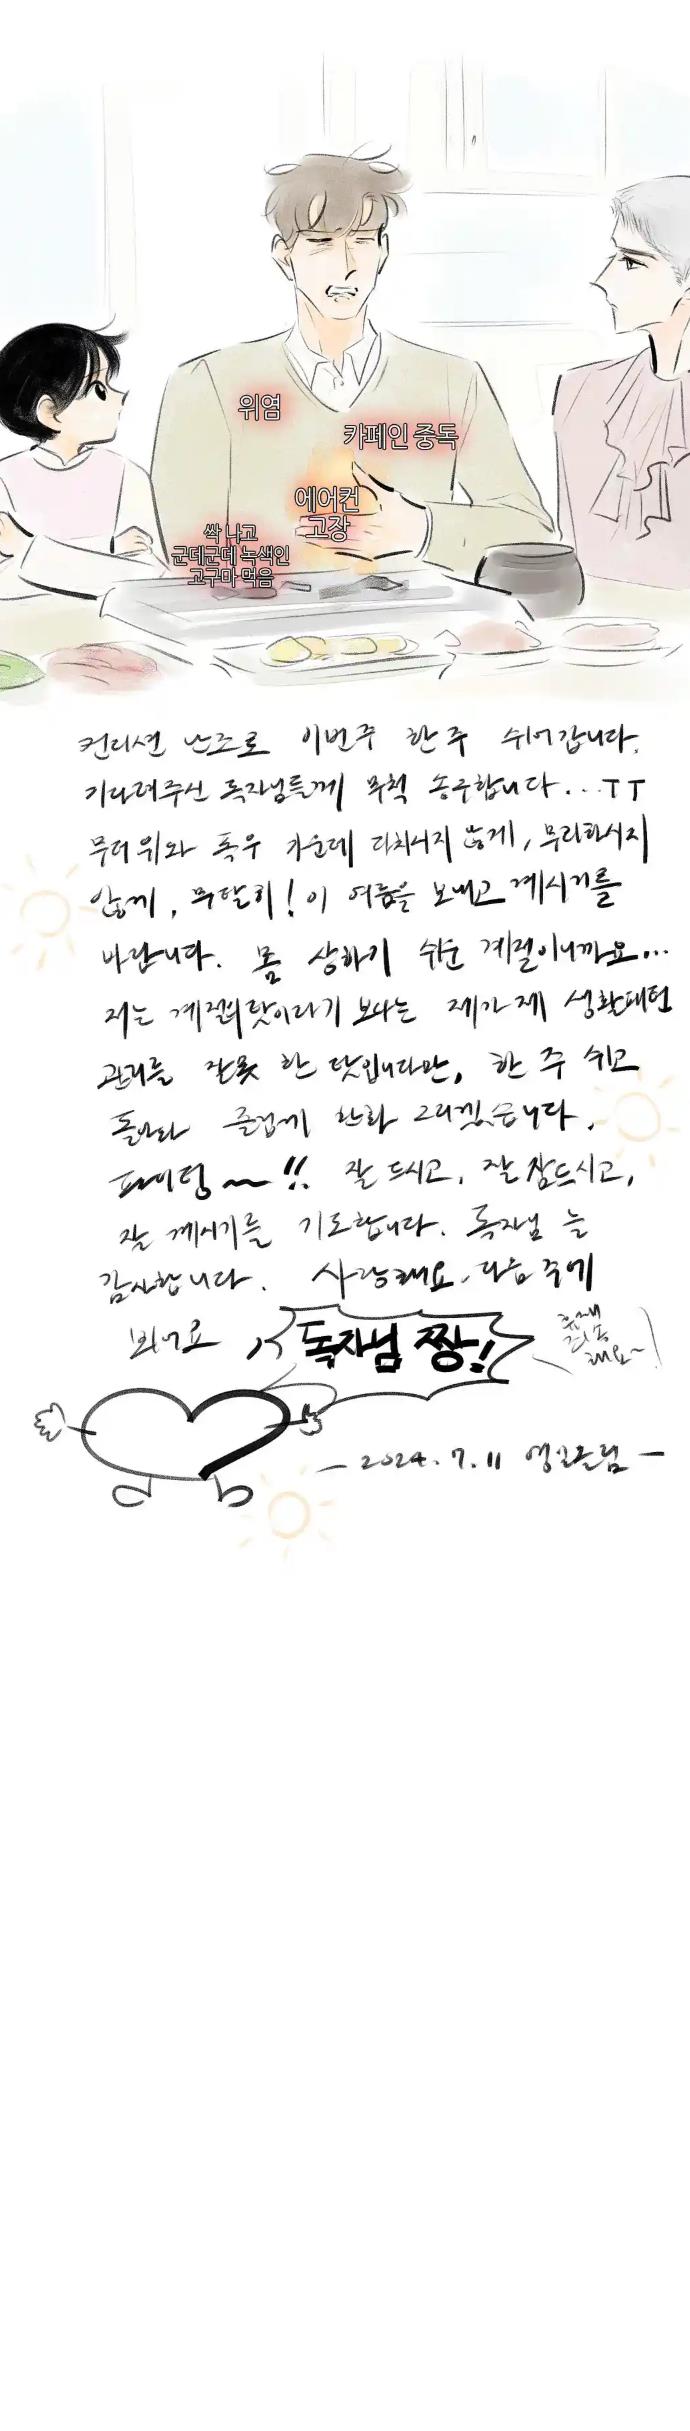 위염
카페인 중독
에어컨
고장
싹 나고
군데군데 녹색인
고구마 먹음
컨디션 난조로 이번주 한 주 쉬어갑니다.
기다려주신 독자님들께 무척 송구합니다...TT
무더위와 폭우 가운데 다치시지 않게, 무리하시지
않게, 무탈히! 이 여름을 보내고 계시기를
바랍니다. 몸 상하기 쉬운 계절이니까요...
저는 계절의 탓이라기 보다는 제가 제 생활패턴
관리를 잘못 한 탓입니다만, 한 주 쉬고
돌아와 즐겁게 한화 그리겠습니다.
파이팅~!! 잘 드시고, 잘 잠드시고,
잘 계시기를 기도합니다. 독자님 늘
감사합니다. 사랑해요. 다음주에
봐어요
독자님 짱!
휴재
죄송
해요~
- 2024. 7. 11